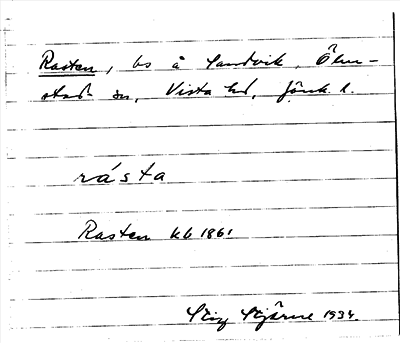 Rasten, bs å Sandvik, Ölm-
stad sn, Vista hd, Jönk. l.
rásta
Rasten kb 1861
Stig Stjärne 1934.